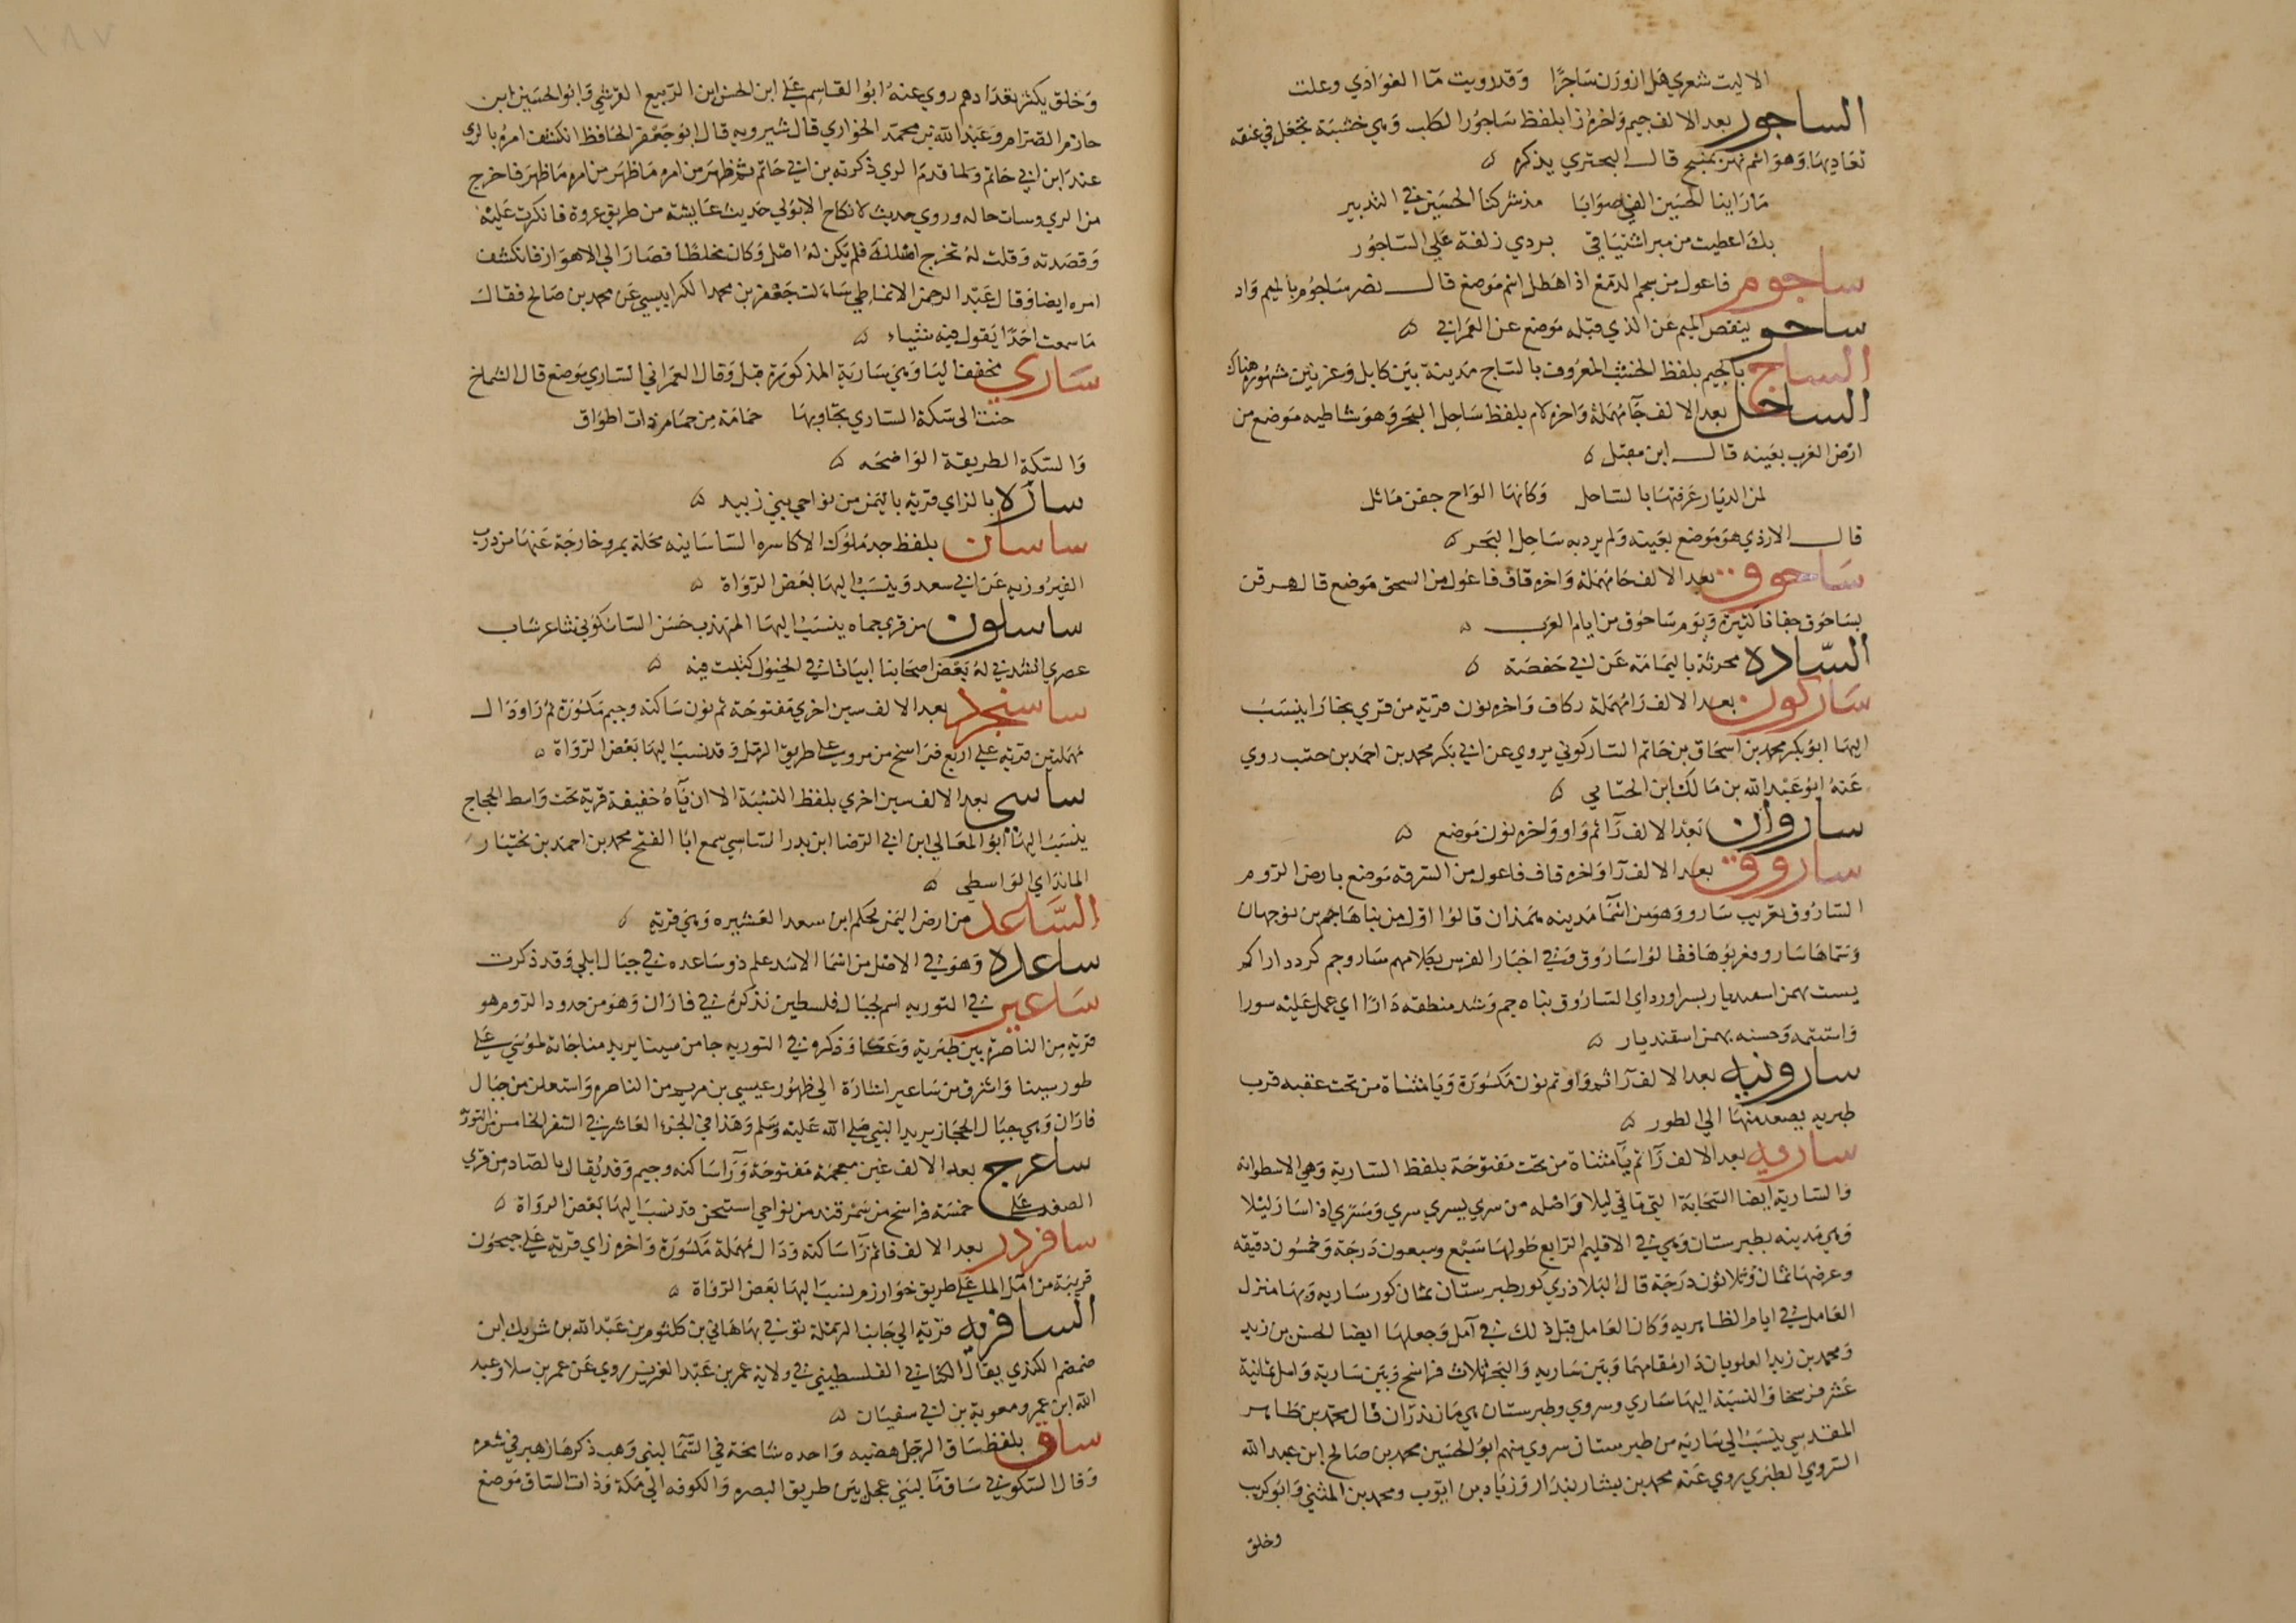 الا ليت شعري هل ازورن ساجرا وقد رويت ماا الغوادي وعلت
الساجور بعد الالف جيم واخره را بلفظ ساجور الكلب وهي خشبة تجعل في عنقه
تقاد بها وهو اسم نهر بمنبج قال البحتري يذكره
ما راينا الحسين الغى صوابا مذ شركنا الحسين في التدبير
بك اعطيت من مبر اشتياقى بردي زلفة على الساجور
ساجوم فاعول من سجم الدمع اذا هطل اسم موضع قال نصر ساجوم بالميم واد
ساجو ينقص الميم عن الذي قبله موضع عن العمراني
الساج بالجيم بلفظ الخشب المعروف بالساج مدينة بين كابل وغزنين مشهوره هناك
الساحل بعد الالف حا مهملة واخره لام بلفظ ساحل البحر وهو شاطيه موضع من
ارض العرب بعينه قال ابن مقبل
لمن الديار عرفتها بالساحل وكانها الواح جفن ماثل
قال الازدي هو موضع بعينه ولم يرد به ساحل البحر
ساحوق بعد الالف حا مهملة واخره قاف فاعول من السحق موضع قال
بساحوق جفانا كثيرة ويوم ساحوق من ايام العرب
السادة محرثة باليمامة عن ابي حفصة
ساركون بعد الالف را مهملة وكاف واخره نون قرية من قري بخارا ينسب
اليها ابو بكر محمد بن اسحاق بن حاتم الساركوني يروي عن ابي بكر محمد بن احمد بن حتب روي
عنه ابو عبد الله بن مالك ابن الحسامي
ساروان بعد الالف را ثم واو واخره نون موضع
ساروق بعد الالف را واخره قاف فاعول من السرقه موضع بارض الروم
الساروق تعريب سارو وهو من اسما مدينه همذان قالوا اول من بناها جم بن نوجهان
وسماها سارو فعربوها فقالوا ساروق وفي اخبار الفرس بكلامهم سارو جم كرد دارا كمر
بست بهمن اسفنديار بسر اورد اي الساروق بناه جم وشد منطقه دارا اي عمل عليه سورا
واستتمه وحسنه بهمن اسفنديار
سارونيه بعد الالف را ثم واو ثم نون مكسورة ويا مثناة من تحت عقبه قرب
طبريه يصعد منها الى الطور
ساريه بعد الالف را ثم يا مثناة من تحت مفتوحة بلفظ السارية وهي الاسطوانه
والسارية ايضا السحابة التي تاتي ليلا واصله من سري يسري سري ومسري اذا سار ليلا
وهي مدينه بطبرستان وهي في الاقليم الرابع طولها سبع وسبعون درجة وخمسون دقيقه
وعرضها ثمان وثلاثون درجة قال البلاذري كور طبرستان ثمان كور ساريه وبها منزل
العامل في ايام الطاهريه وكان العامل قبل ذلك في آمل وجعلها ايضا الحسن بن زيد
ومحمد بن زيد العلويان دار مقامهما وبين ساريه والبحر ثلاث فراسخ وبين سارية وامل ثمانية
عشر فرسخا والنسبة اليها ساري وسروي وطبرستان هي مازندران قال محمد بن طاهر
المقدسي ينسب الى سارية من طبرستان سروي منهم ابو الحسين محمد بن صالح ابن عبد الله
السروي الطبري يروي عنه محمد بن بشار بندار وزياد بن ايوب ومحمد بن المثني وابو كريب
وخلق
وخلق يكثر تعدادهم روي عنه ابو القاسم علي ابن الحسن ابن الربيع القرشي وابو الحسين ابن
حازم الصرام وعبد الله بن محمد الخواري قال شيرويه قال ابو جعفر الحافظ انكشف امره بالري
عند ابن ابي حاتم ولما قدم الري ذكرته بن ابي حاتم ثم ظهر من امره ما ظهر من امره ما ظهر فاخرج
من الري وسات حاله وروي حديث لا نكاح الا بولي حديث عايشة من طريق عروة فانكرت عليه
وقصدته وقلت له تخرج اصلك فلم يكن له اصل وكان مخلطا فصار الي الاهواز فانكشف
امره ايضا وقال عبد الرحمن الانماطي سالت جعفر بن محمد الكرابيسي عن محمد بن صالح فقال
ما سمعت احدا يقول فيه شياء
ساري مخفف اليا وهي سارية المذكورة قبل وقال العمراني الساري موضع قال الشماخ
حنت الى سكة الساري تجاوبها حمامة من حمام ذات اطواق
والسكة الطريقة الواضحه
سازلا بالزاي قرية باليمن من نواحي بني زبيد
ساسان بلفظ جد ملوك الاكاسره الساسانيه محلة بمرو خارجة عنها من درب
الفيروزيه عن ابي سعد وينسب اليها بعض الرواة
ساسلون من قري حماه ينسب اليها المهذب حسن الساسكوني شاعر شاب
عصري انشدني له بعض اصحابنا ابياتا في الخيول كتبت فيه
ساسنجرد بعد الالف سين اخري مفتوحة ثم نون ساكنة وجيم مكسورة ثم را ودال
مهملتين قرية علي اربع فراسخ من مرو علي طريق الرمل وقد نسب اليها بعض الرواة
ساسي بعد الالف سين اخري بلفظ النسبة الا ان ياه خفيفة قرية تحت واسط الحجاج
ينسب اليها ابو المعالي ابن ابي الرضا ابن بدر الساسي سمع ابا الفتح محمد بن احمد بن بختيار
المانداي الواسطي
الساعد من ارض اليمن لحكم ابن سعد العشيره وهي قرية
ساعده وهو في الاصل من اسما الاسد علم ذو ساعده في جبال ابلي وقد ذكرت
ساعير في التوريه اسم لجبال فلسطين نذكره في فاران وهو من حدود الروم هو
قرية من الناصرة بين طبرية وعكا وذكره في التوريه جا من سينا يريد مناجاته لموسي علي
طور سينا واشرف من ساعير اشارة الي ظهور عيسي بن مريم من الناصره واستعلن من جبال
فاران وهي جبال الحجاز يريد النبي صلي الله عليه وسلم وهذا في الجزء العاشر في السفر الخامس من التوراة
ساغرج بعد الالف غين معجمة مفتوحة ورا ساكنه وجيم وقد يقال بالصاد من قري
الصغد علي خمسة فراسخ من سمرقند من نواحي استيخن قد نسب اليها بعض الرواة
سافردز بعد الالف فا ثم را ساكنه ودال مهملة مكسورة واخره زاي قرية علي جيحون
قريبة من آمل الملي علي طريق خوارزم نسب اليها بعض الرواة
السافريه قرية الى جانب الرملة توفي بها هاني بن كلثوم بن عبد الله بن شريك ابن
ضمضم الكندي يقال الكناني الفلسطيني في ولاية عمر بن عبد العزيز روي عن عمر بن سلا وعبد
الله ابن عمر ومعوية بن ابي سفيان
ساق بلفظ ساق الرجل هضبه واحده شامخة في السما لبني وهب ذكرها زهير في شعره
وقال السكوني ساق ماا لبني عجل بين طريق البصره والكوفه الى مكة وذات الساق موضع